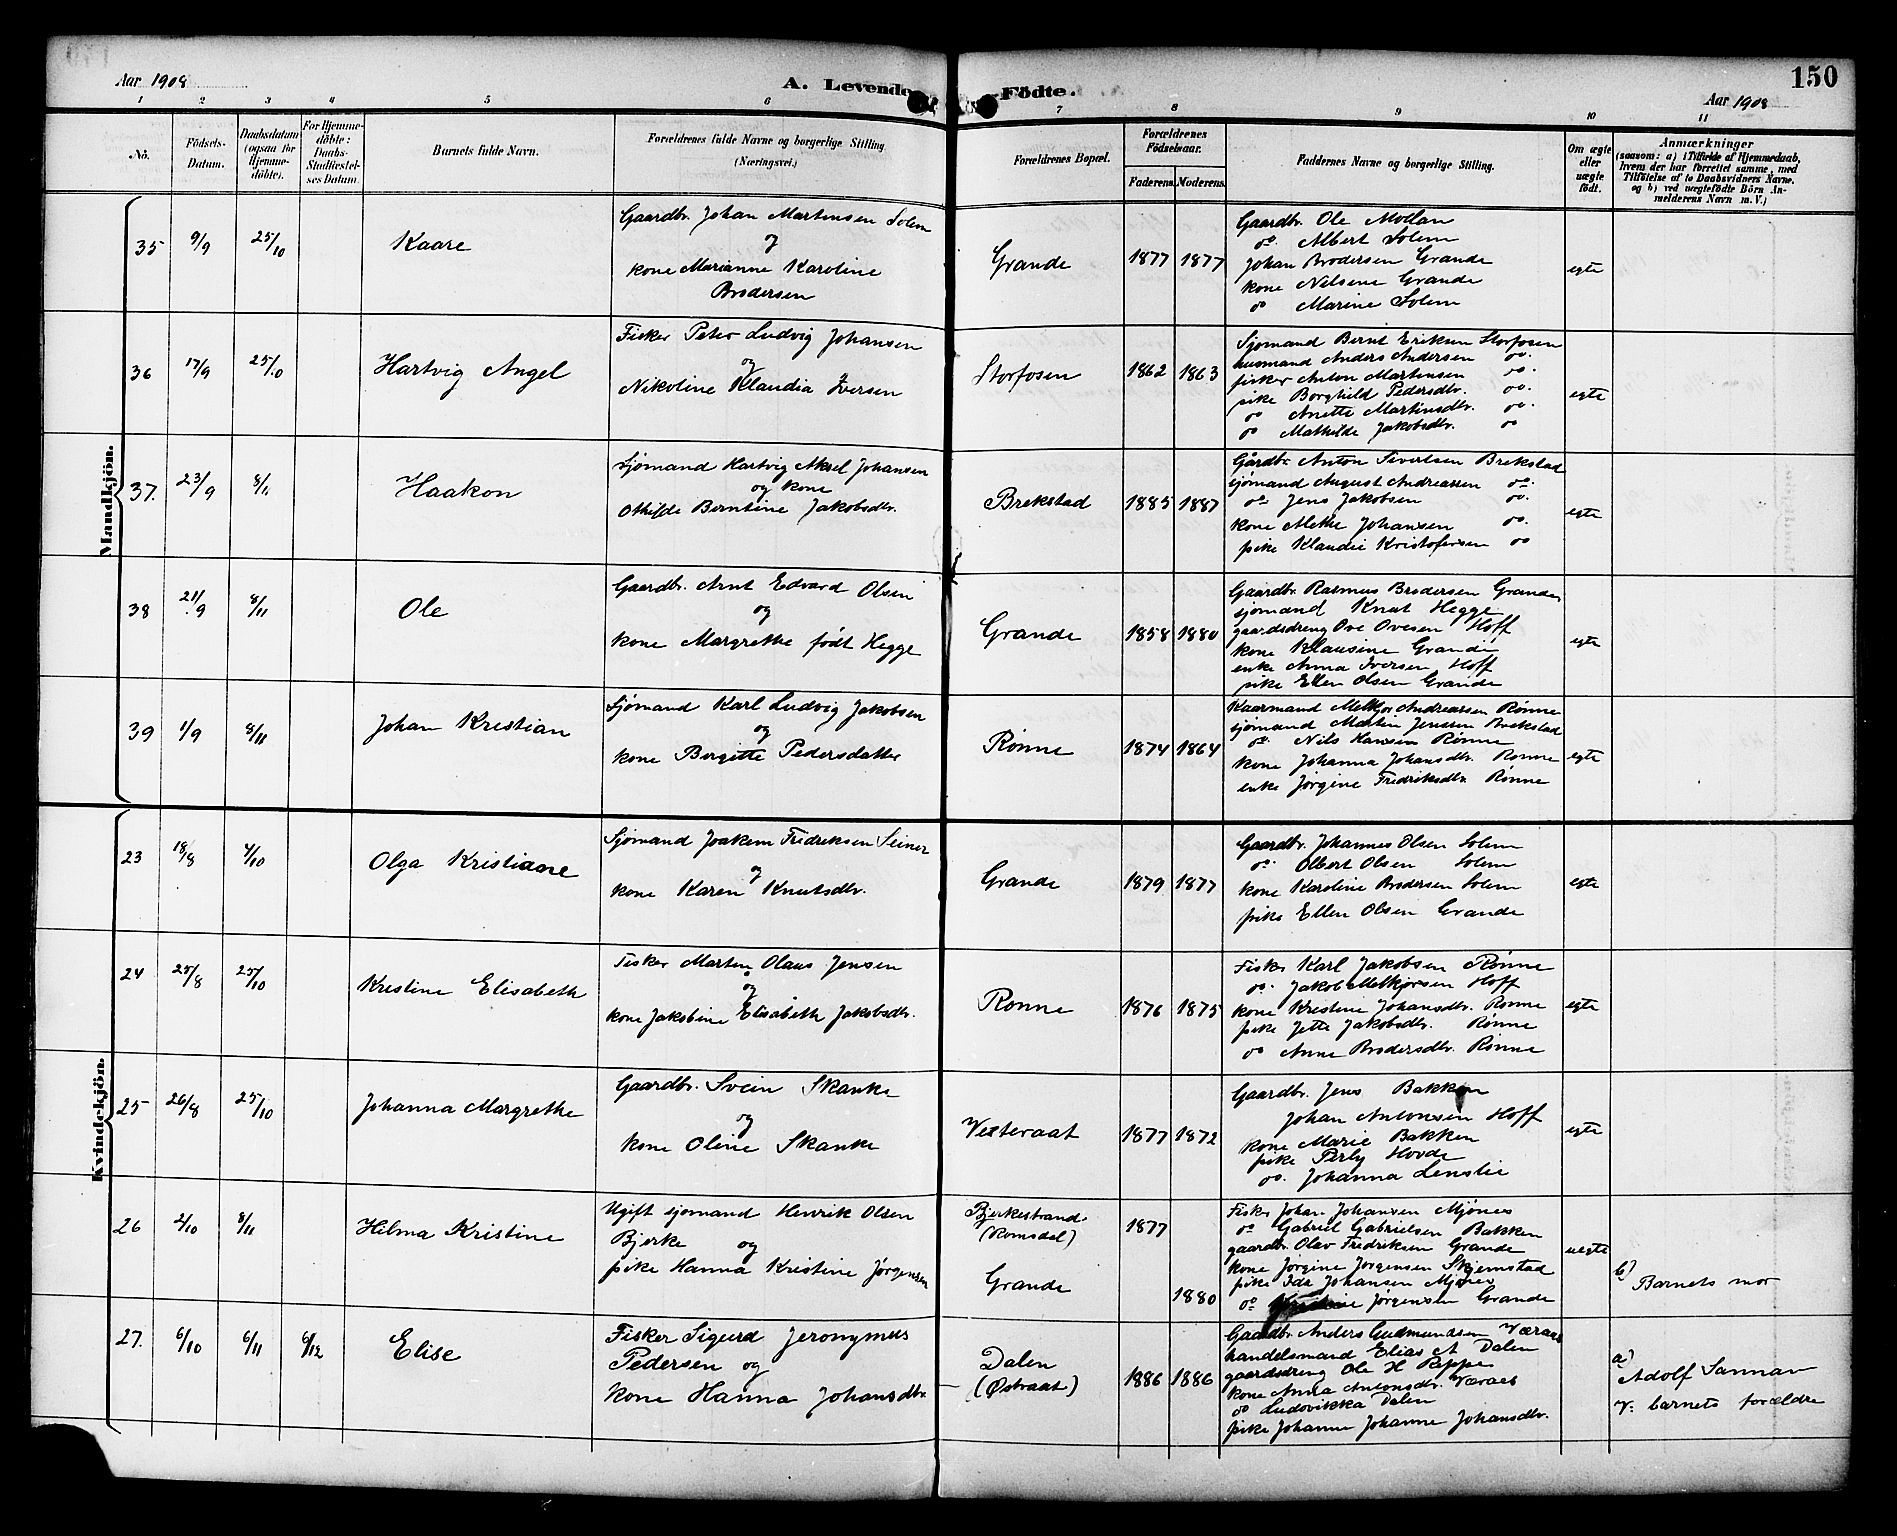 Aar 1908
A. Levende Födte.
150
Aar 1908
1 2 3 4 5 6 7 8 9 10 11
No.
Födsels-Datum.
Daabsdatum (ogsaa for Hjemme-döbte).
For Hjemme-döbte: Daabs-Stadfæstel-ses Datum.
Barnets fulde Navn.
Forældrenes fulde Navne og borgerlige Stilling (Næringsvei.)
Forældrenes Bopæl.
Forældrenes Födselsaar.
Faderens. Moderens.
Faddernes Navne og borgerlige Stilling.
Om ægte eller uægte födt.
Anmærkninger
(saasom: a) i Tilfælde af Hjemmedaab,
hvem der har forrettet samme, med
Tilföielse af to Daabsvidners Navne.
og b) ved uægtefödte Börn An-
melderens Navn m. V.)
Mandkjön.
35 9/9 25/10 Kaare
Gaardbr. Johan Martinsen Solem
og
kone Marianne Karoline
Brodersen
Grande 1877 1877
Gaardbr. Ole Moflan
do. Albert Solem
Johan Brodersen Grande
kone Nilsine Grande
do Marine Solem
egte
36 17/9 25/10 Hartvig Angel
Fisker Peter Ludvig Johansen
og
Nikoline Klaudia Iversen
Storfosen 1862 1863
Sjømand Bernt Eriksen Storfosen
husmand Anders Andersen do.
fisker Anton Martinsen do.
pike Borghild Pedersdtr. do.
do Anette Martinsdtr. do.
do Mathilde Jakobsdtr. do
egte
37. 23/9 8/11 Haakon
Sjømand Hartvig Aksel Johansen
og kone
Othilde Berntine Jakobsdtr.
Brekstad 1885 1887
Gårdbr. Anton Sivertsen Brekstad
sjømand August Andreassen do.
do Jens Jakobsen do.
kone Methe Johansen do.
pike Klaudie Kristofersen do
egte
38 21/9 8/11 Ole
Gaardbr. Arnt Edvard Olsen
og
kone Margrethe født Hegge
Grande 1858 1880
Gaardbr. Rasmus Brodersen Grande
sjømand Knut Hegge
gaardsdreng Ove Ovesen Hoff
kone Klausine Grande
enke Anna Iversen Hoff
pike Ellen Olsen Grande
egte
39 1/9 8/11 Johan Kristian
Sjømand Karl Ludvig Jakobsen
og
kone Bergitte Pedersdatter
Rønne 1874 1864
Kaarmand Melkjor Andreassen Rønne
sjømand Martin Jenssen Brekstad
do. Nils Hansen Rønne
kone Johanna Johansdtr. Rønne
enke Jørgine Fredriksdtr. Rønne
egte
Kvindekjön.
23 18/8 4/10 Olga Kristiane
Sjømand Joakim Fredriksen Seiner
og
kone Karen Knutsdtr.
Grande 1879 1877
Gaardbr. Johannes Olsen Solem
do. Olbert Olsen Solem
kone Karoline Brodersen Solem
pike Ellen Olsen Grande
egte
24 25/8 25/10 Kristine Elisabeth
Fisker Marten Olaus Jensen
og
kone Jakobine Elisabeth Jakobsdtr.
Rønne 1876 1875
Fisker Karl Jakobsen Rønne
do. Jakob Melkjorsen Hoff
kone Kristine Johansdtr. Rønne
pike Jette Jakobsdtr. Rønne
do Anne Brodersdtr. Rønne
egte
25 26/8 25/10 Johanna Margrethe
Gaardbr. Svein Skanke
og
kone Oline Skanke
Vesteraat 1877 1872
Gaardbr. Jens Bakken
Johan Antonsen Hoff
kone Marie Bakken
pike Perly Hovde
do. Johanna Lenslie
egte
26 2/10 8/11 Hilma Kristine
Ugift sjømand Henrik Olsen
Bjerke og
pike Hanna Kristine Jørgensen
Bjerkestrand
(Romsdal)
Grande
1877
1880
Fisker Johan Johansen Mjønes
do Gabriel Gabrielsen Bakken
gaardbr. Olav Fredriksen Grande
kone Jørgine Jørgensen Skjemstad
pike Ida Johansen Mjønes
do Jørgensen Grande
uegte
b) Barnets mor
27. 6/10 6/11 6/12 Elise
Fisker Sigurd Jeronymus
Pedersen og
kone Hanna Johansdtr.
Dalen
(Østraat)
1886 1886
Gaardbr. Anders Gudmundsen Væraas
handelsmand Elias A Dalen
gaardsdreng Ole H Reppe
kone Anna Antonsdtr. Væraas
do Ludovikka Dalen
pike Johanne Johanne Johansdtr.
a)
Adolf Sannan
v. barnets forældre